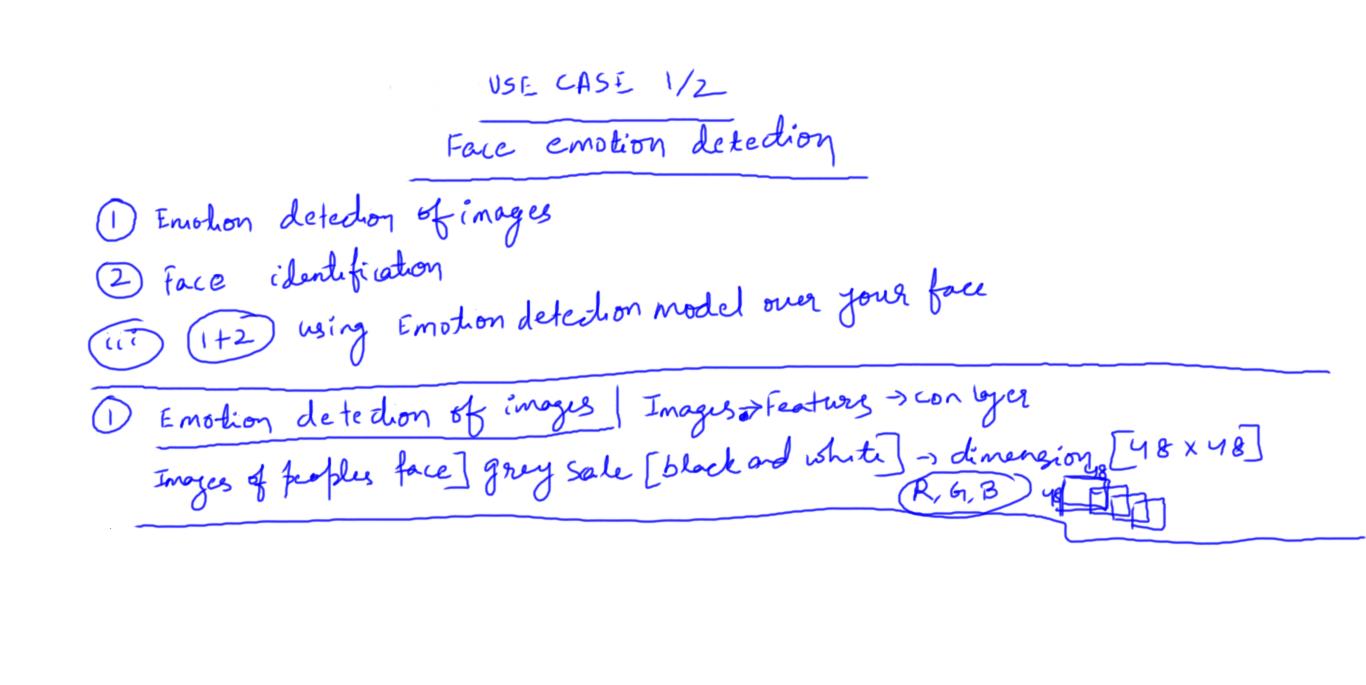 USE CASE 1/2
Face emotion detection
① Emotion detection of images
② Face identification
iii 1+2 using Emotion detection model over your face
① Emotion detection of images | Images → Features → con layer
Images of peoples face] grey sale [black and white] → dimension [48 x 48]
R, G, B 48 48